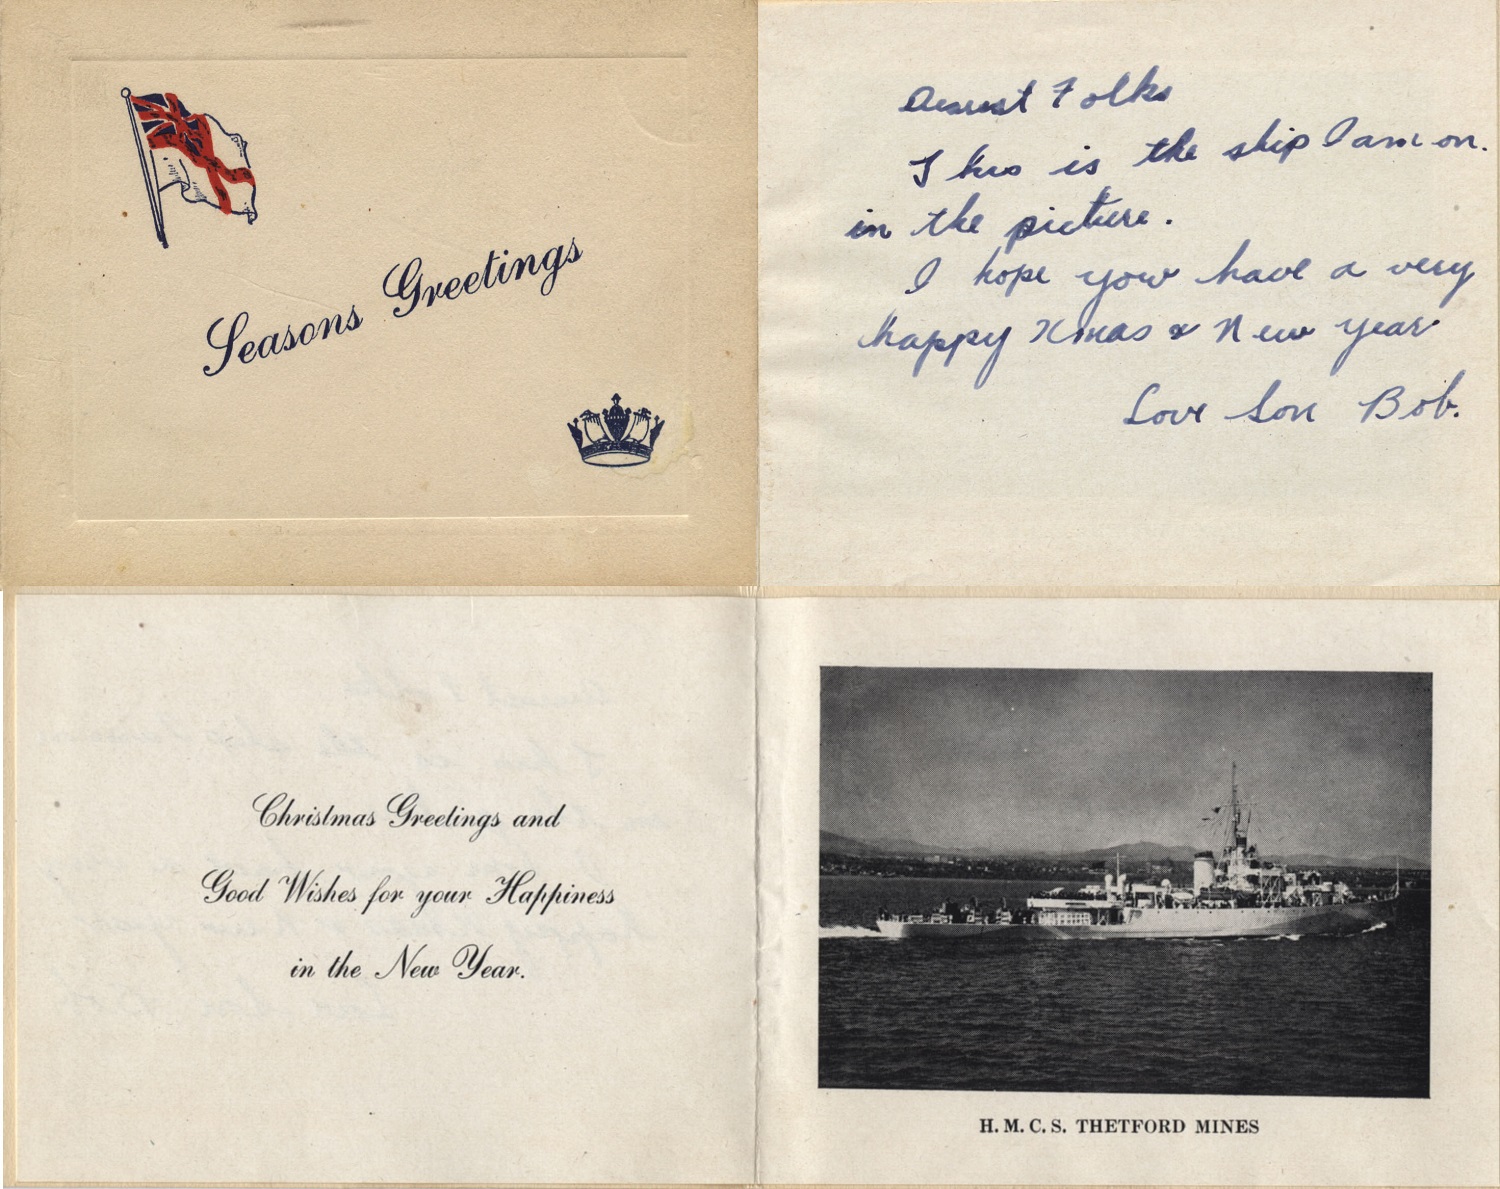 Seasons Greetings
Dearest Folks
This is the ship I am on.
in the picture.
I hope you have a very
happy Xmas & New year
Love Son Bob.
Christmas Greetings and
Good Wishes for your Happiness
in the New Year.
H. M. C. S. THETFORD MINES